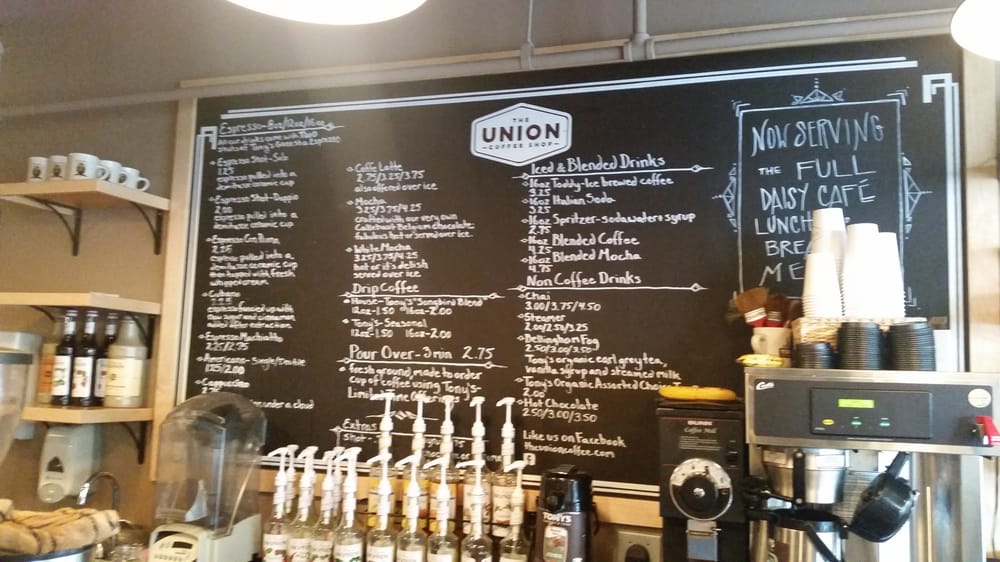 THE
UNION
COFFEE SHOP
Espresso-8oz/12oz/16oz
All our drinks come with TWO
shots of Tony's Ganesha Espresso
Espresso Shot-Solo
1.25
espresso pulled into a
demitasse ceramic cup
Espresso Shot-Doppio
2.00
espresso pulled into a
demitasse ceramic cup
Espresso Con Panna
2.25
espresso pulled into a
demitasse ceramic cup
then topped with fresh
whipped cream
Cubano
espresso fancied up with
raw sugar and cinnamon
added after extraction
Espresso Macchiatto
2.25/2.75
Americano-Single/Double
1.25/2.00
Cappuccino
under a cloud
Caffe Latte
2.75/3.25/3.75
also offered over ice
Mocha
3.25/3.75/4.25
crafted with our very own
Callebaut Belgium chocolate
fabulous hot or served over ice
White Mocha
3.25/3.75/4.25
hot or it's delish
served over ice
Drip Coffee
House-Tony's "Songbird Blend"
12oz-1.50 16oz-2.00
Tony's-Seasonal
12oz-1.50 16oz-2.00
Pour Over-3min 2.75
fresh ground, made to order
cup of coffee using Tony's-
Limited Time Offerings
Extras
Shot-
Iced & Blended Drinks
16oz Toddy-Ice brewed coffee
3.25
16oz Italian Soda
3.25
16oz Spritzer-sodawater & syrup
2.75
16oz Blended Coffee
4.25
16oz Blended Mocha
4.75
Non Coffee Drinks
Chai
3.00/3.75/4.50
Steamer
2.00/2.50/3.25
Bellingham Fog
2.50/3.00/3.50
Tony's organic earl grey tea,
vanilla syrup and steamed milk
Tony's Organic Assorted Choice
2.00
Hot Chocolate
2.50/3.00/3.50
Like us on Facebook
theunioncoffee.com
f
NOW SERVING
THE FULL
DAISY CAFÉ
LUNCH
BRE
ME
BUNN
Coffee Mill
Curtis
TONY'S